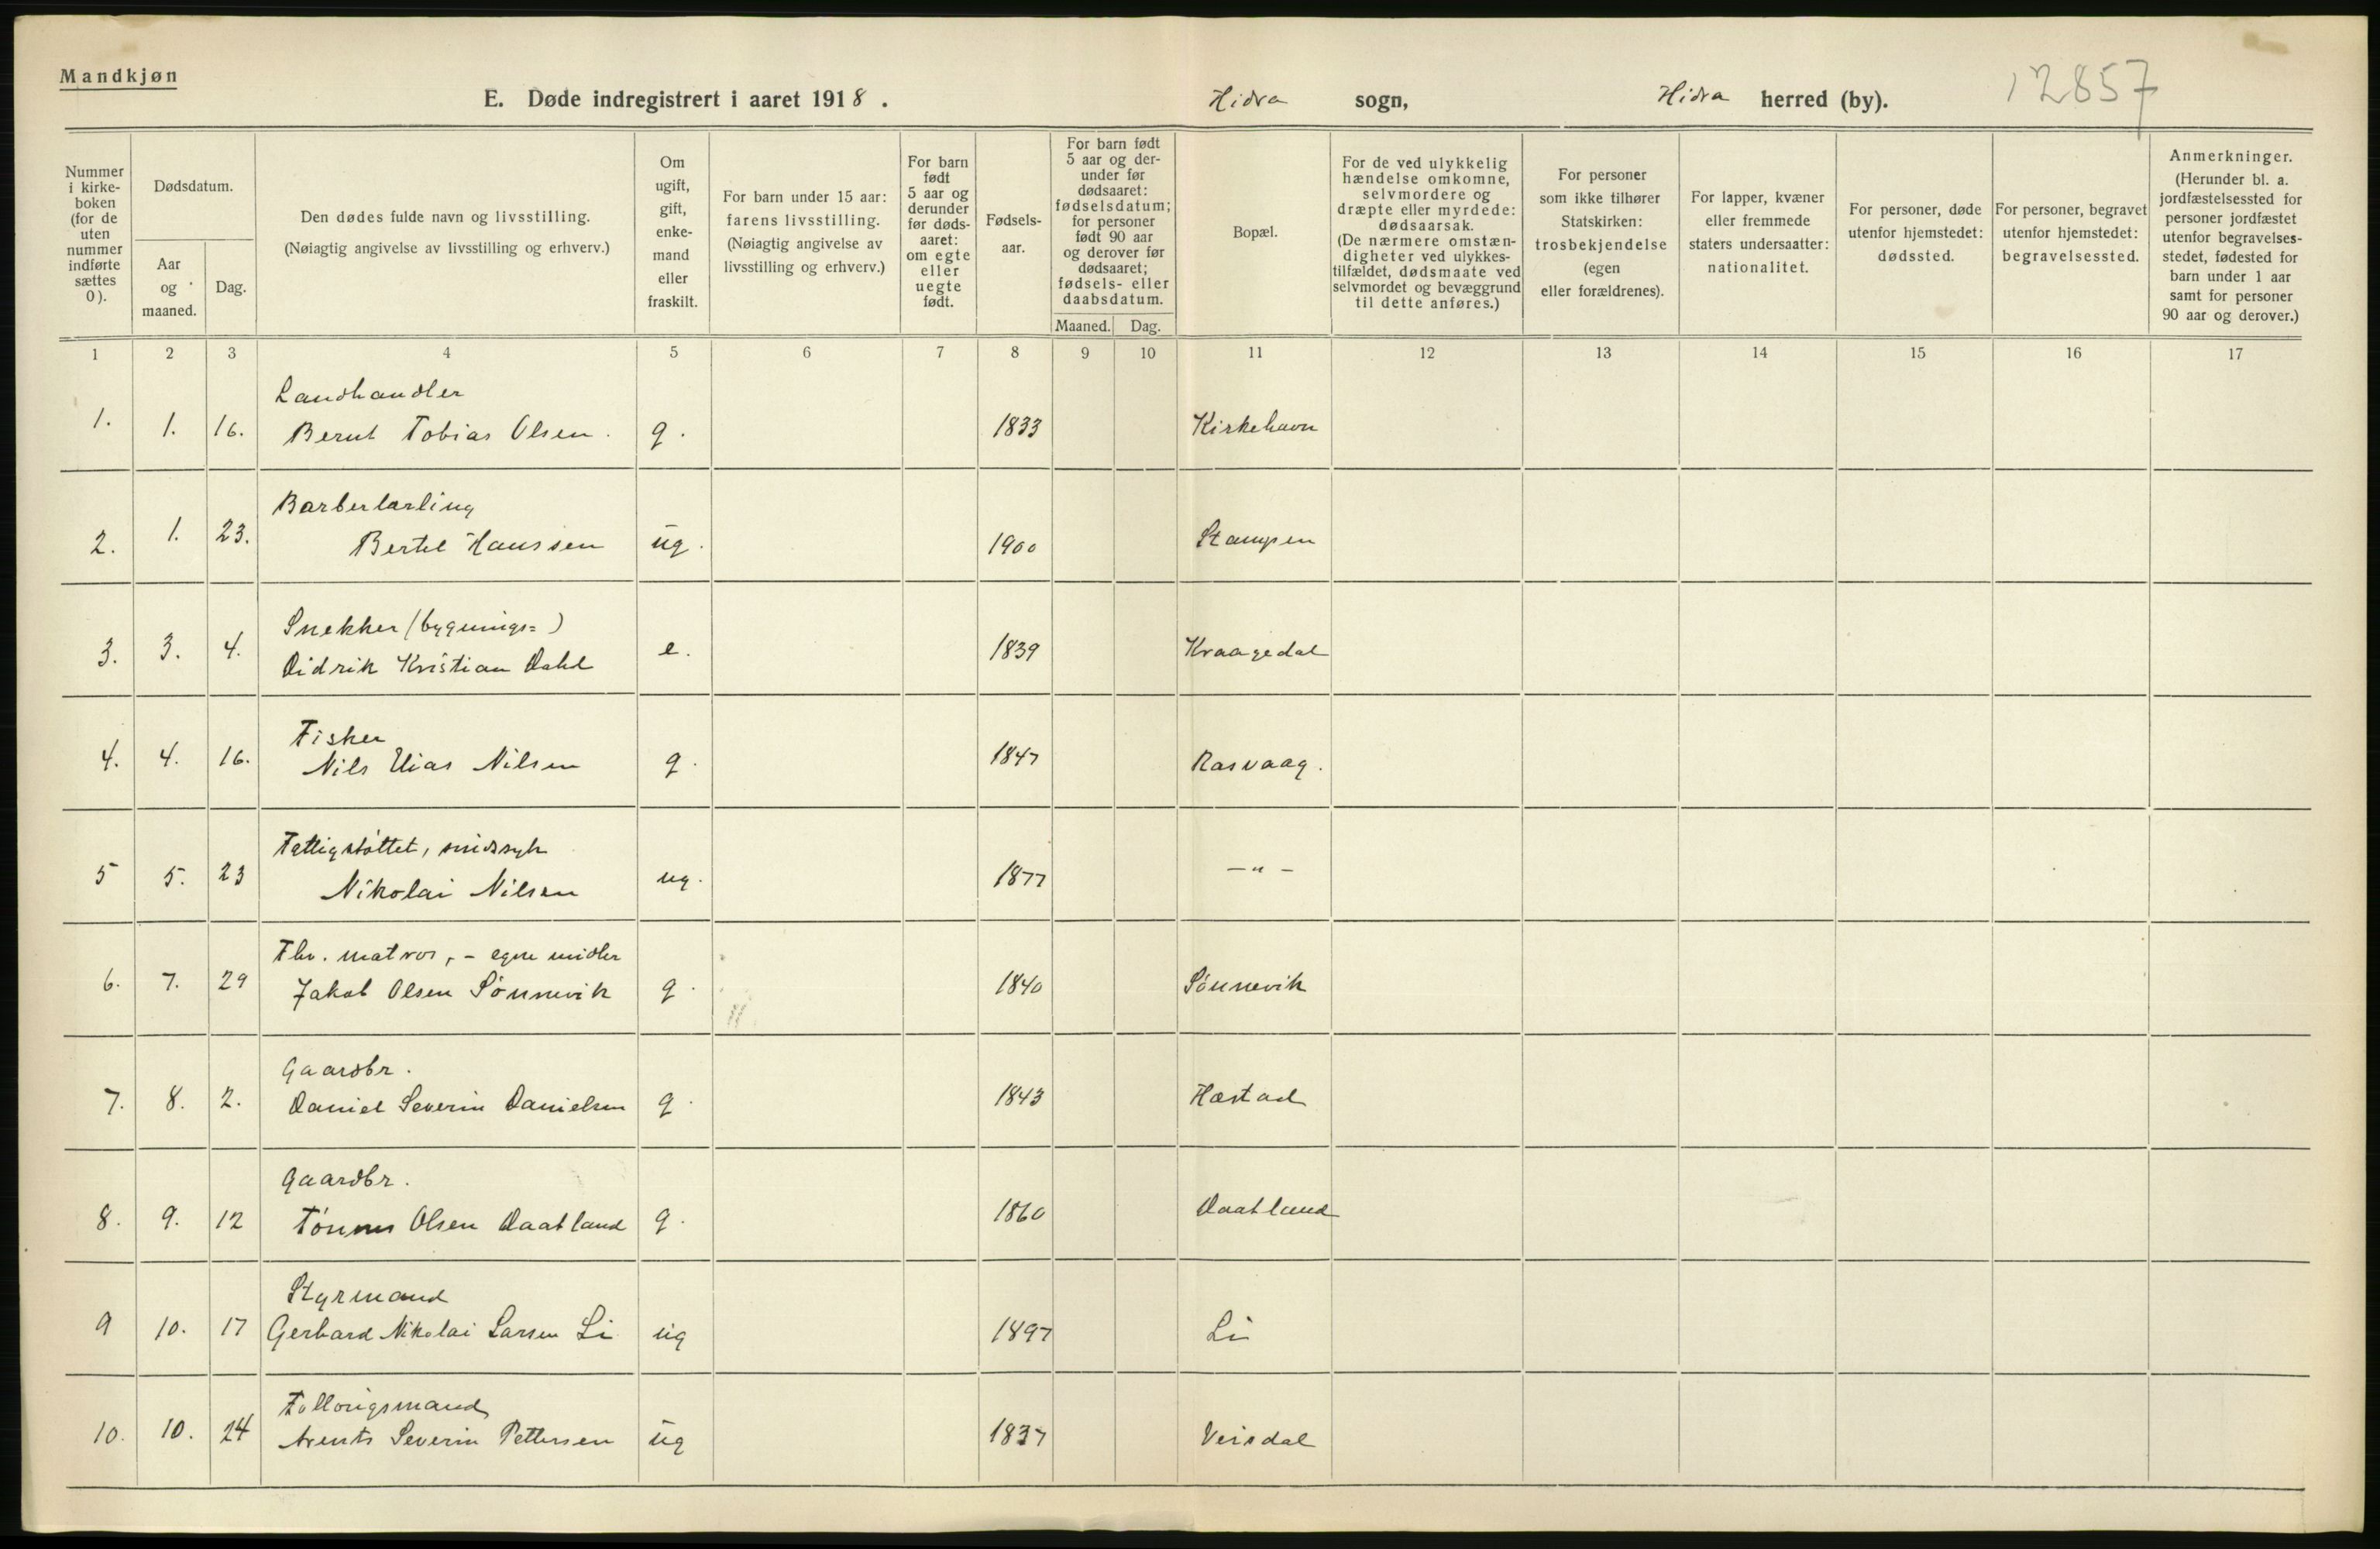 Mandkjøn
E. Døde indregistrert i aaret 1918. Hidra sogn, Hidra herred (by). 12857
Nummer i kirke-boken (for de uten nummer indførte sættes 0).
Dødsdatum.
Aar og maaned.
Dag.
Den dødes fulde navn og livsstilling.
(Nøiagtig angivelse av livsstilling og erhverv.)
Om ugift, gift, enke-mand eller fraskilt.
For barn under 15 aar: farens livsstilling.
(Nøiagtig angivelse av livsstilling og erhverv.)
For barn født 5 aar og derunder før døds-aaret: om egte eller uegte født.
Fødsels-aar.
For barn født 5 aar og der-under før dødsaaret: fødselsdatum; for personer født 90 aar og derover før dødsaaret; fødsels- eller daabsdatum.
Maaned. Dag.
Bopæl.
For de ved ulykkelig hændelse omkomne, selvmordere og dræpte eller myrdede: dødsaarsak.
(De nærmere omstæn-digheter ved ulykkes-tilfældet, dødsmaate ved selvmordet og bevæggrund til dette anføres.)
For personer som ikke tilhører Statskirken: trosbekjendelse (egen eller forældrenes).
For lapper, kvæner eller fremmede staters undersaatter: nationalitet.
For personer, døde utenfor hjemstedet: dødssted.
For personer, begravet utenfor hjemstedet: begravelsessted.
Anmerkninger.
(Herunder bl. a. jordfæstelsessted for personer jordfæstet utenfor begravelses-stedet, fødested for barn under 1 aar samt for personer 90 aar og derover.)
1 2 3 4 5 6 7 8 9 10 11 12 13 14 15 16 17
Landhandler
1. 1. 16. Bernt Tobias Olsen. g. 1833 Kirkehavn
Barberlærling
2. 1. 23. Bertel Hanssen ug. 1900 Stampen
Snekker (bygnings=)
3. 3. 4. Didrik Kristian Dahl e. 1839 Kraagedal
Fisker
4. 4. 16. Nils Elias Nilsen g. 1847 Rasvaag.
Fattigstøttet, sindssyk
5 5. 23 Nikolai Nilsen ug. 1877 — " —
Fhv. matros, - egne midler
6. 7. 29 Jakob Olsen Sønnevik g. 1840 Sønnevik
Gaardbr.
7. 8. 2. Daniel Severin Danielsen g. 1843 Hæstad
Gaardbr.
8. 9. 12 Tønnes Olsen Daatland g. 1860 Daatland
Styrmand
9 10. 17 Gerhard Nikolai Larsen Li ug 1897 Li
Follougsmand
10. 10. 24 Arents Severin Pettersen ug 1837 Veisdal